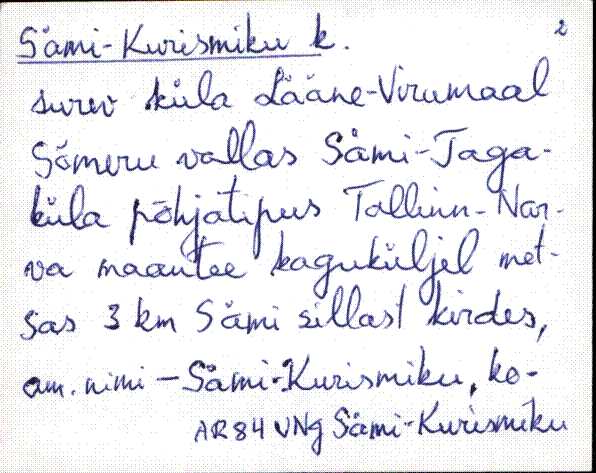 Sämi-Kurismiku k. 2
surev küla Lääne-Virumaal
Sõmeru vallas Sämi-Taga-
küla põhjatipus Tallinn-Nar-
va maantee kaguküljel met-
sas 3 km Sämi sillast kirdes,
am. nimi - Sämi-Kurismiku, ko-
AR84 VNg Sämi-Kurismiku